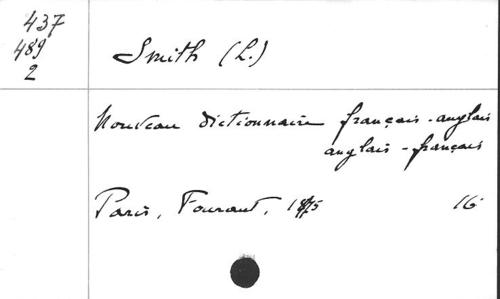 437
489
2
Smith (L.)
Nouveau dictionnaire français-anglais
anglais-français
Paris, Fouraut, 1875 16°